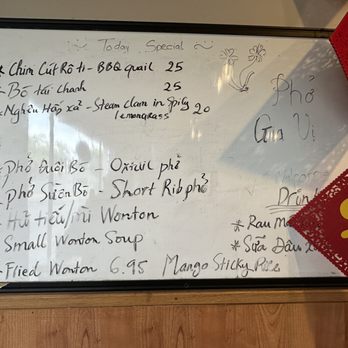 Today Special
* Chim Cút Rô ti - BBQ quail 25
- Bò tái chanh 25
* Nghêu Hấp xả - Steam clam in Spicy 20
lemongrass
Phở
Gia Vị
- Phở Đuôi Bò - Oxtail phở
- phở Sườn Bò - Short Rib phở
- Hủ tiếu/mì Wonton
* Rau Má
Small Wonton Soup
* Sữa Đậu
- Flied Wonton 6.95 Mango Sticky Rice